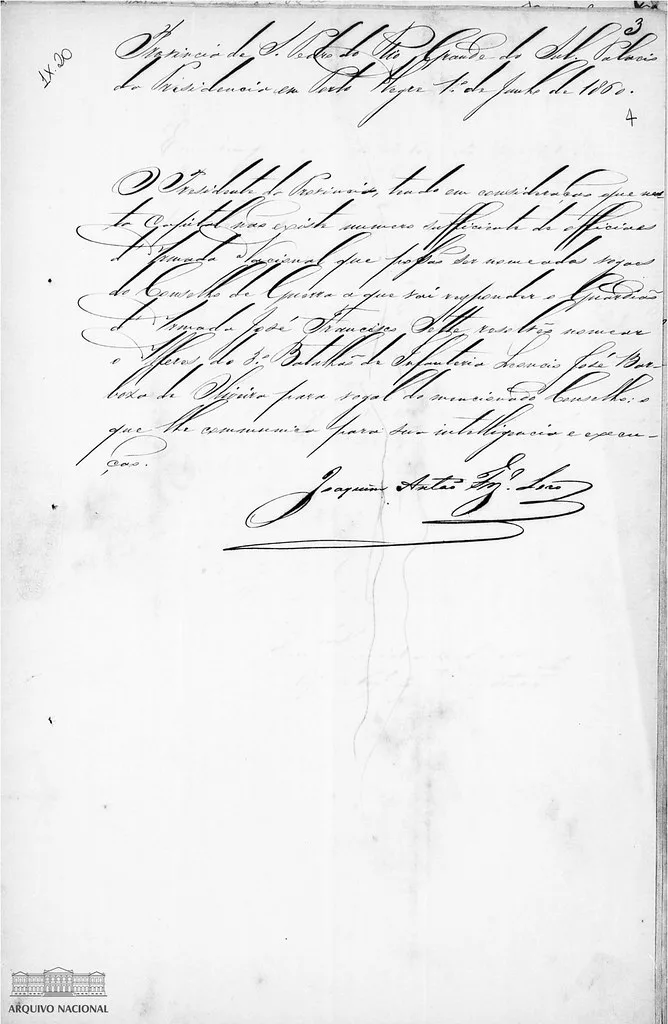 3
1x.20
Provincia de S. Pedro do Rio Grande do Sul, Palacio
da Presidencia em Porto Alegre 1º de Junho de 1860.
4
O Presidente da Provincia, tendo em consideração que nes
ta Capital não existe numero sufficiente de officiaes
d'Armada Nacional que possão ser nomeados vogaes
do Conselho de Guerra a que vai responder o Guardião
d'Armada José Francisco Sette, resolveo nomear
o Alferes do 3º Batalhão de Infanteria Leoncio José Bar-
boza de Oliveira para vogal do mencionado Conselho; o
que lhe communica para sua intelligencia e execu-
ção.
Joaquim Antão Fz. Leão
ARQUIVO NACIONAL